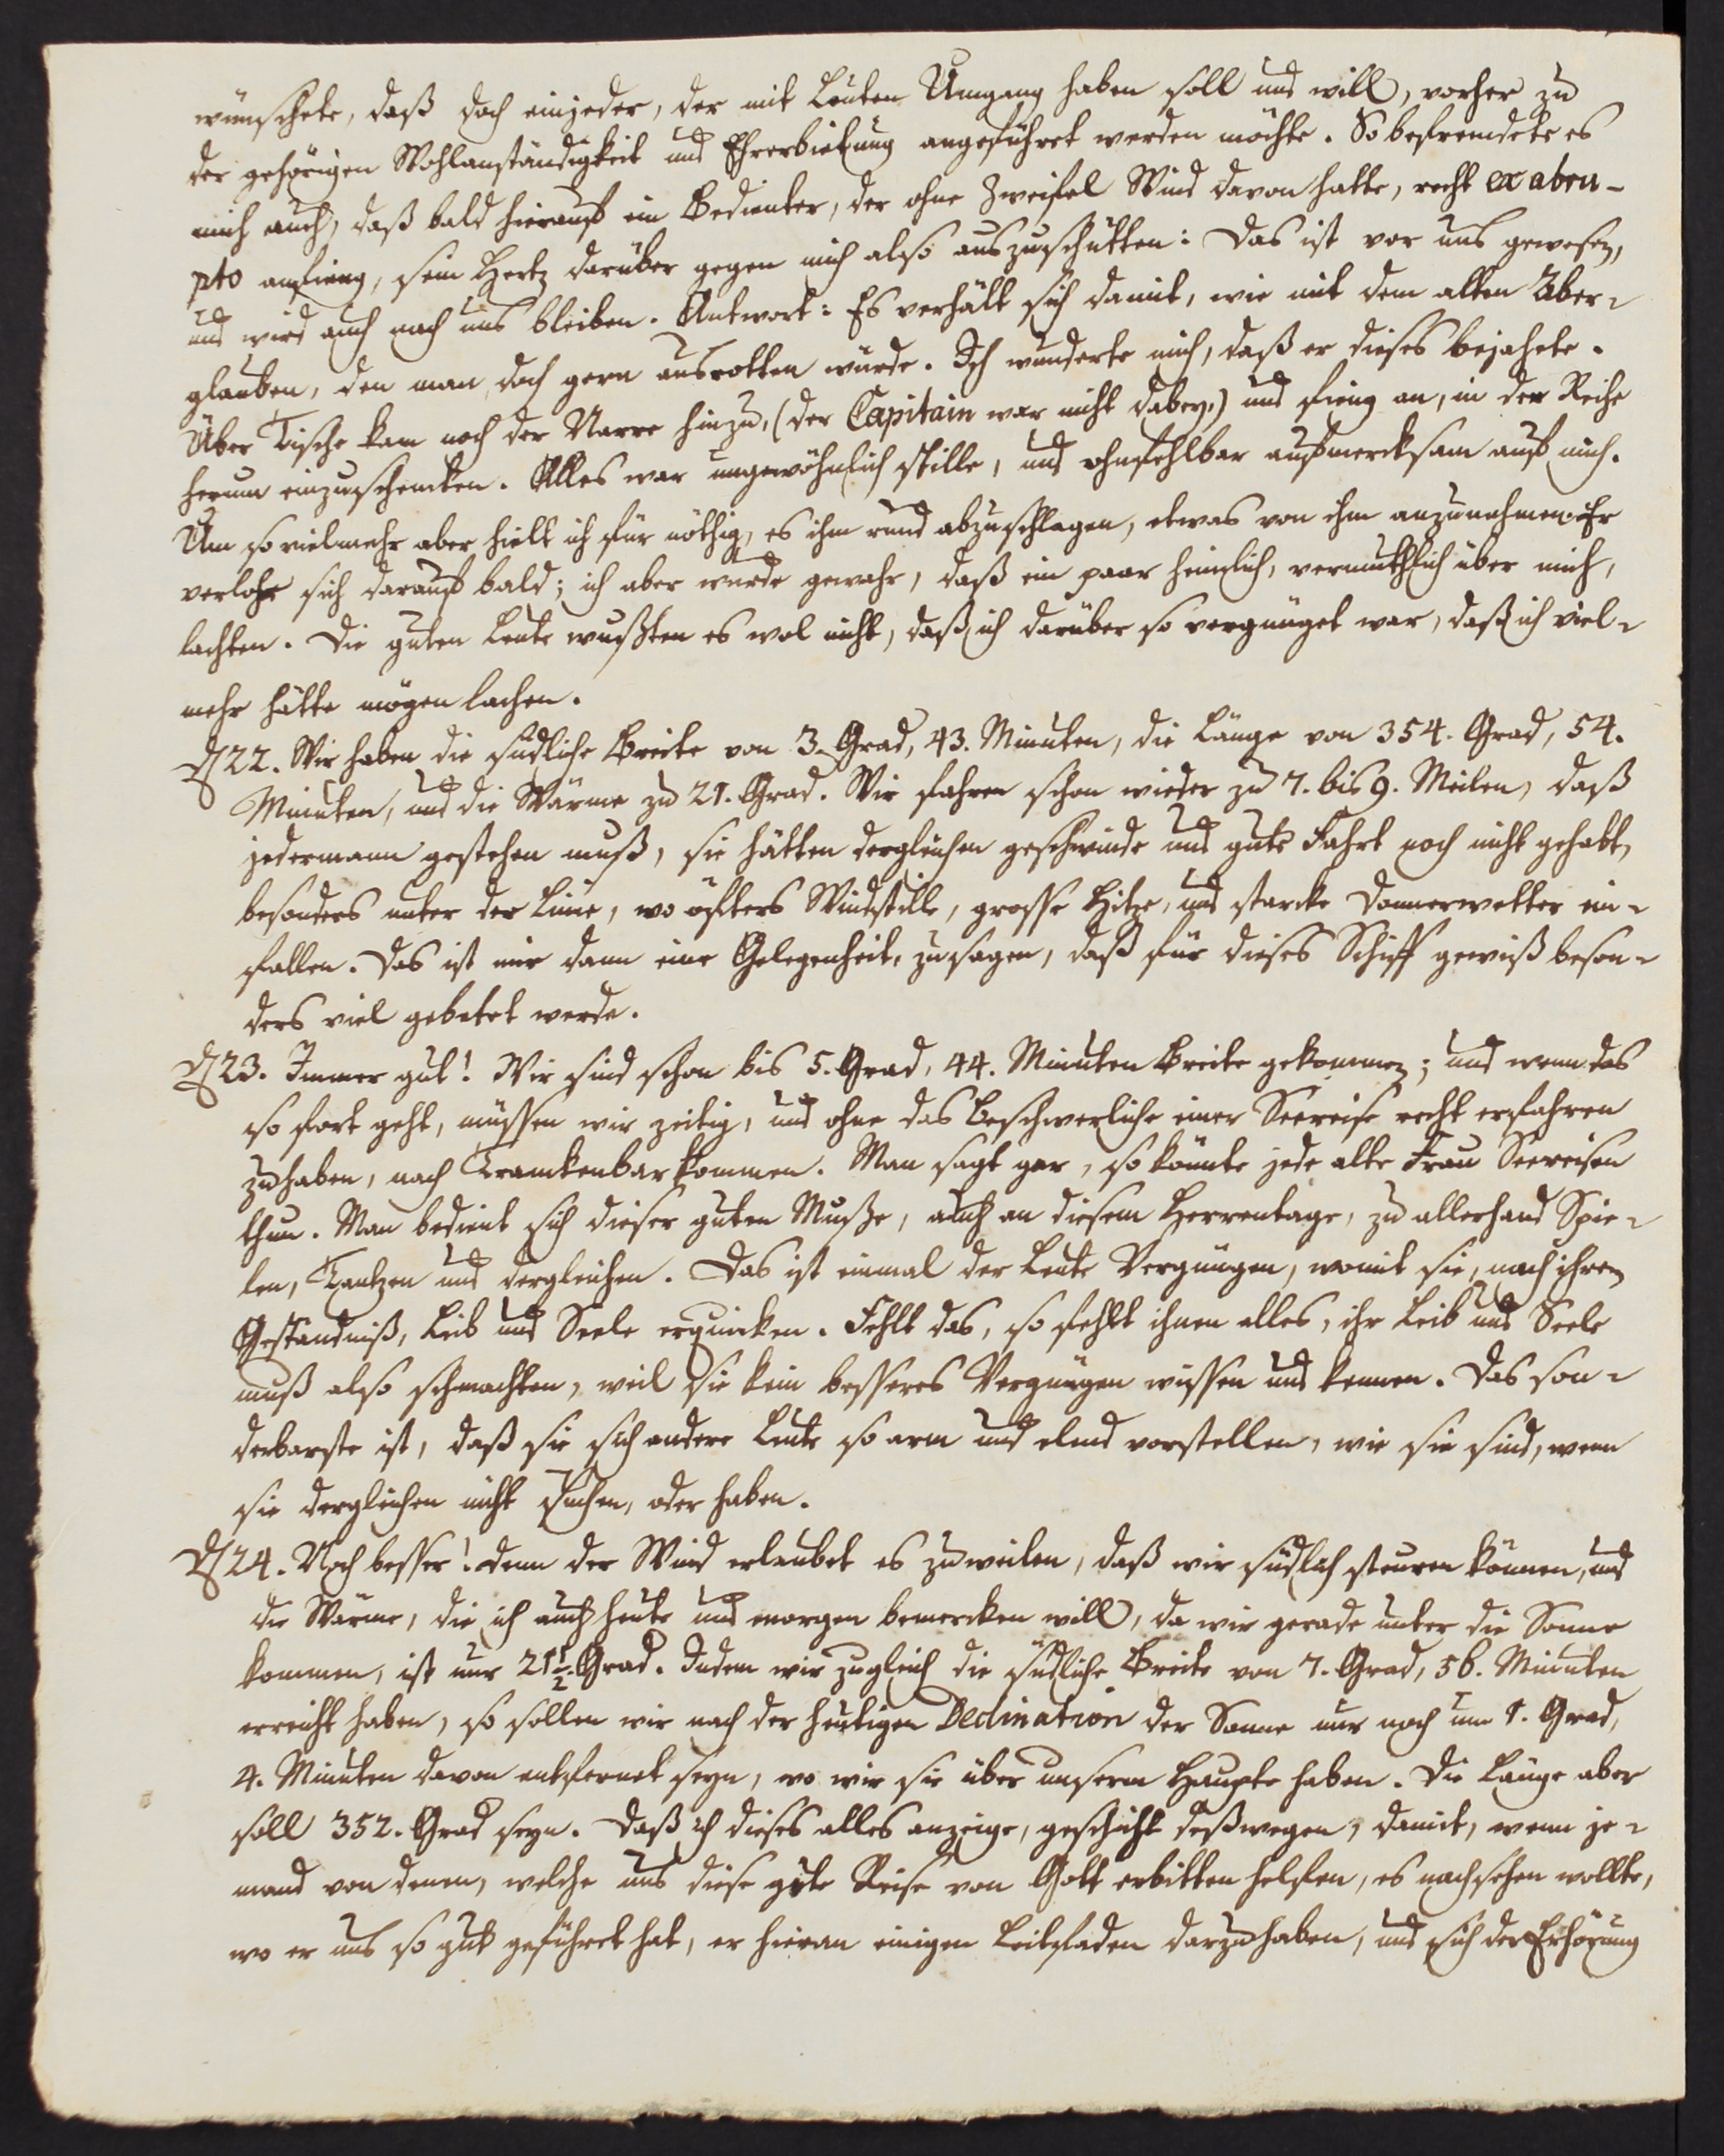 wünschete, daß doch ein jeder, der mit Leuten Umgang haben soll und will, vorher zu
der gehörigen Wohlanständigkeit und Ehrerbietung angeführet werden möchte. So befremdete es
mich auch, daß bald hierauf ein Bedienter, der ohne Zweifel Wind davon hatte, recht ex abru-
pto anfieng, sein Hertz darüber gegen mich also auszuschütten: Das ist vor uns gewesen,
und wird auch nach uns bleiben. Antwort: Es verhält sich damit, wie mit dem alten Aber-
glauben, den man doch gern ausrotten würde. Ich wunderte mich, daß er dieses bejahete.
Über Tische kam noch der Narre hinzu, (der Capitain war nicht dabey,) und fieng an, in der Reihe
herum einzuschencken. Alles war ungewöhnlich stille, und ohnfehlbar aufmercksam auf mich.
Um so vielmehr aber hielt ich für nöthig, es ihm rund abzuschlagen, etwas von ihm anzunehmen. Er
verlohr sich darauf bald; ich aber wurde gewahr, daß ein paar heimlich, vermuthlich über mich,
lachten. Die guten Leute wußten es wol nicht, daß ich darüber so vergnüget war, daß ich viel-
mehr hätte mögen lachen.
D 22. Wir haben die südliche Breite von 3. Grad, 43. Minuten, die Länge von 354. Grad, 54.
Minuten, und die Wärme zu 21. Grad. Wir fahren schon wieder zu 7. bis 9. Meilen, daß
jedermann gestehen muß, sie hätten dergleichen geschwinde und gute Fahrt noch nicht gehabt,
besonders unter der Linie, wo öfters Windstille, grosse Hitze, und starcke Donnerwetter ein-
fallen. Das ist mir dann eine Gelegenheit, zu sagen, daß für dieses Schiff gewiß beson-
ders viel gebetet werde.
D 23. Immer gut! Wir sind schon bis 5. Grad, 44. Minuten Breite gekommen; und wenn das
so fort geht, müssen wir zeitig, und ohne das Beschwerliche einer Seereise recht erfahren
zu haben, nach Tranckenbar kommen. Man sagt gar, so könnte jede alte Frau Seereisen
thun. Man bedient sich dieser guten Muße, auch an diesem Herrentage, zu allerhand Spie-
len, Tantzen und dergleichen. Das ist einmal der Leute Vergnügen, womit sie, nach ihrem
Geständniß, Leib und Seele erquicken. Fehlt das, so fehlt ihnen alles, ihr Leib und Seele
muß also schmachten, weil sie kein besseres Vergnügen wissen und kennen. Das son-
derbarste ist, daß sie sich andere Leute so arm und elend vorstellen, wie sie sind, wenn
sie dergleichen nicht suchen, oder haben.
D 24. Noch besser! denn der Wind erlaubet es zuweilen, daß wir südlich steuren können, und
die Wärme, die ich auch heute und morgen bemercken will, da wir gerade unter die Sonne
kommen, ist nur 21 1/2. Grad. Indem wir zugleich die südliche Breite von 7. Grad, 56. Minuten
erreicht haben, so sollen wir nach der heutigen Declination der Sonne nur noch um 1. Grad,
4. Minuten davon entfernet seyn, wo wir sie über unserm Haupte haben. Die Länge aber
soll 352. Grad seyn. Daß ich dieses alles anzeige, geschicht deßwegen, damit, wenn je-
mand von denen, welche uns diese gute Reise von Gott erbitten helfen, es nachsehen wollte,
wo er uns so gut geführet hat, er hieran einigen Leitfaden darzu haben, und sich der Erhörung